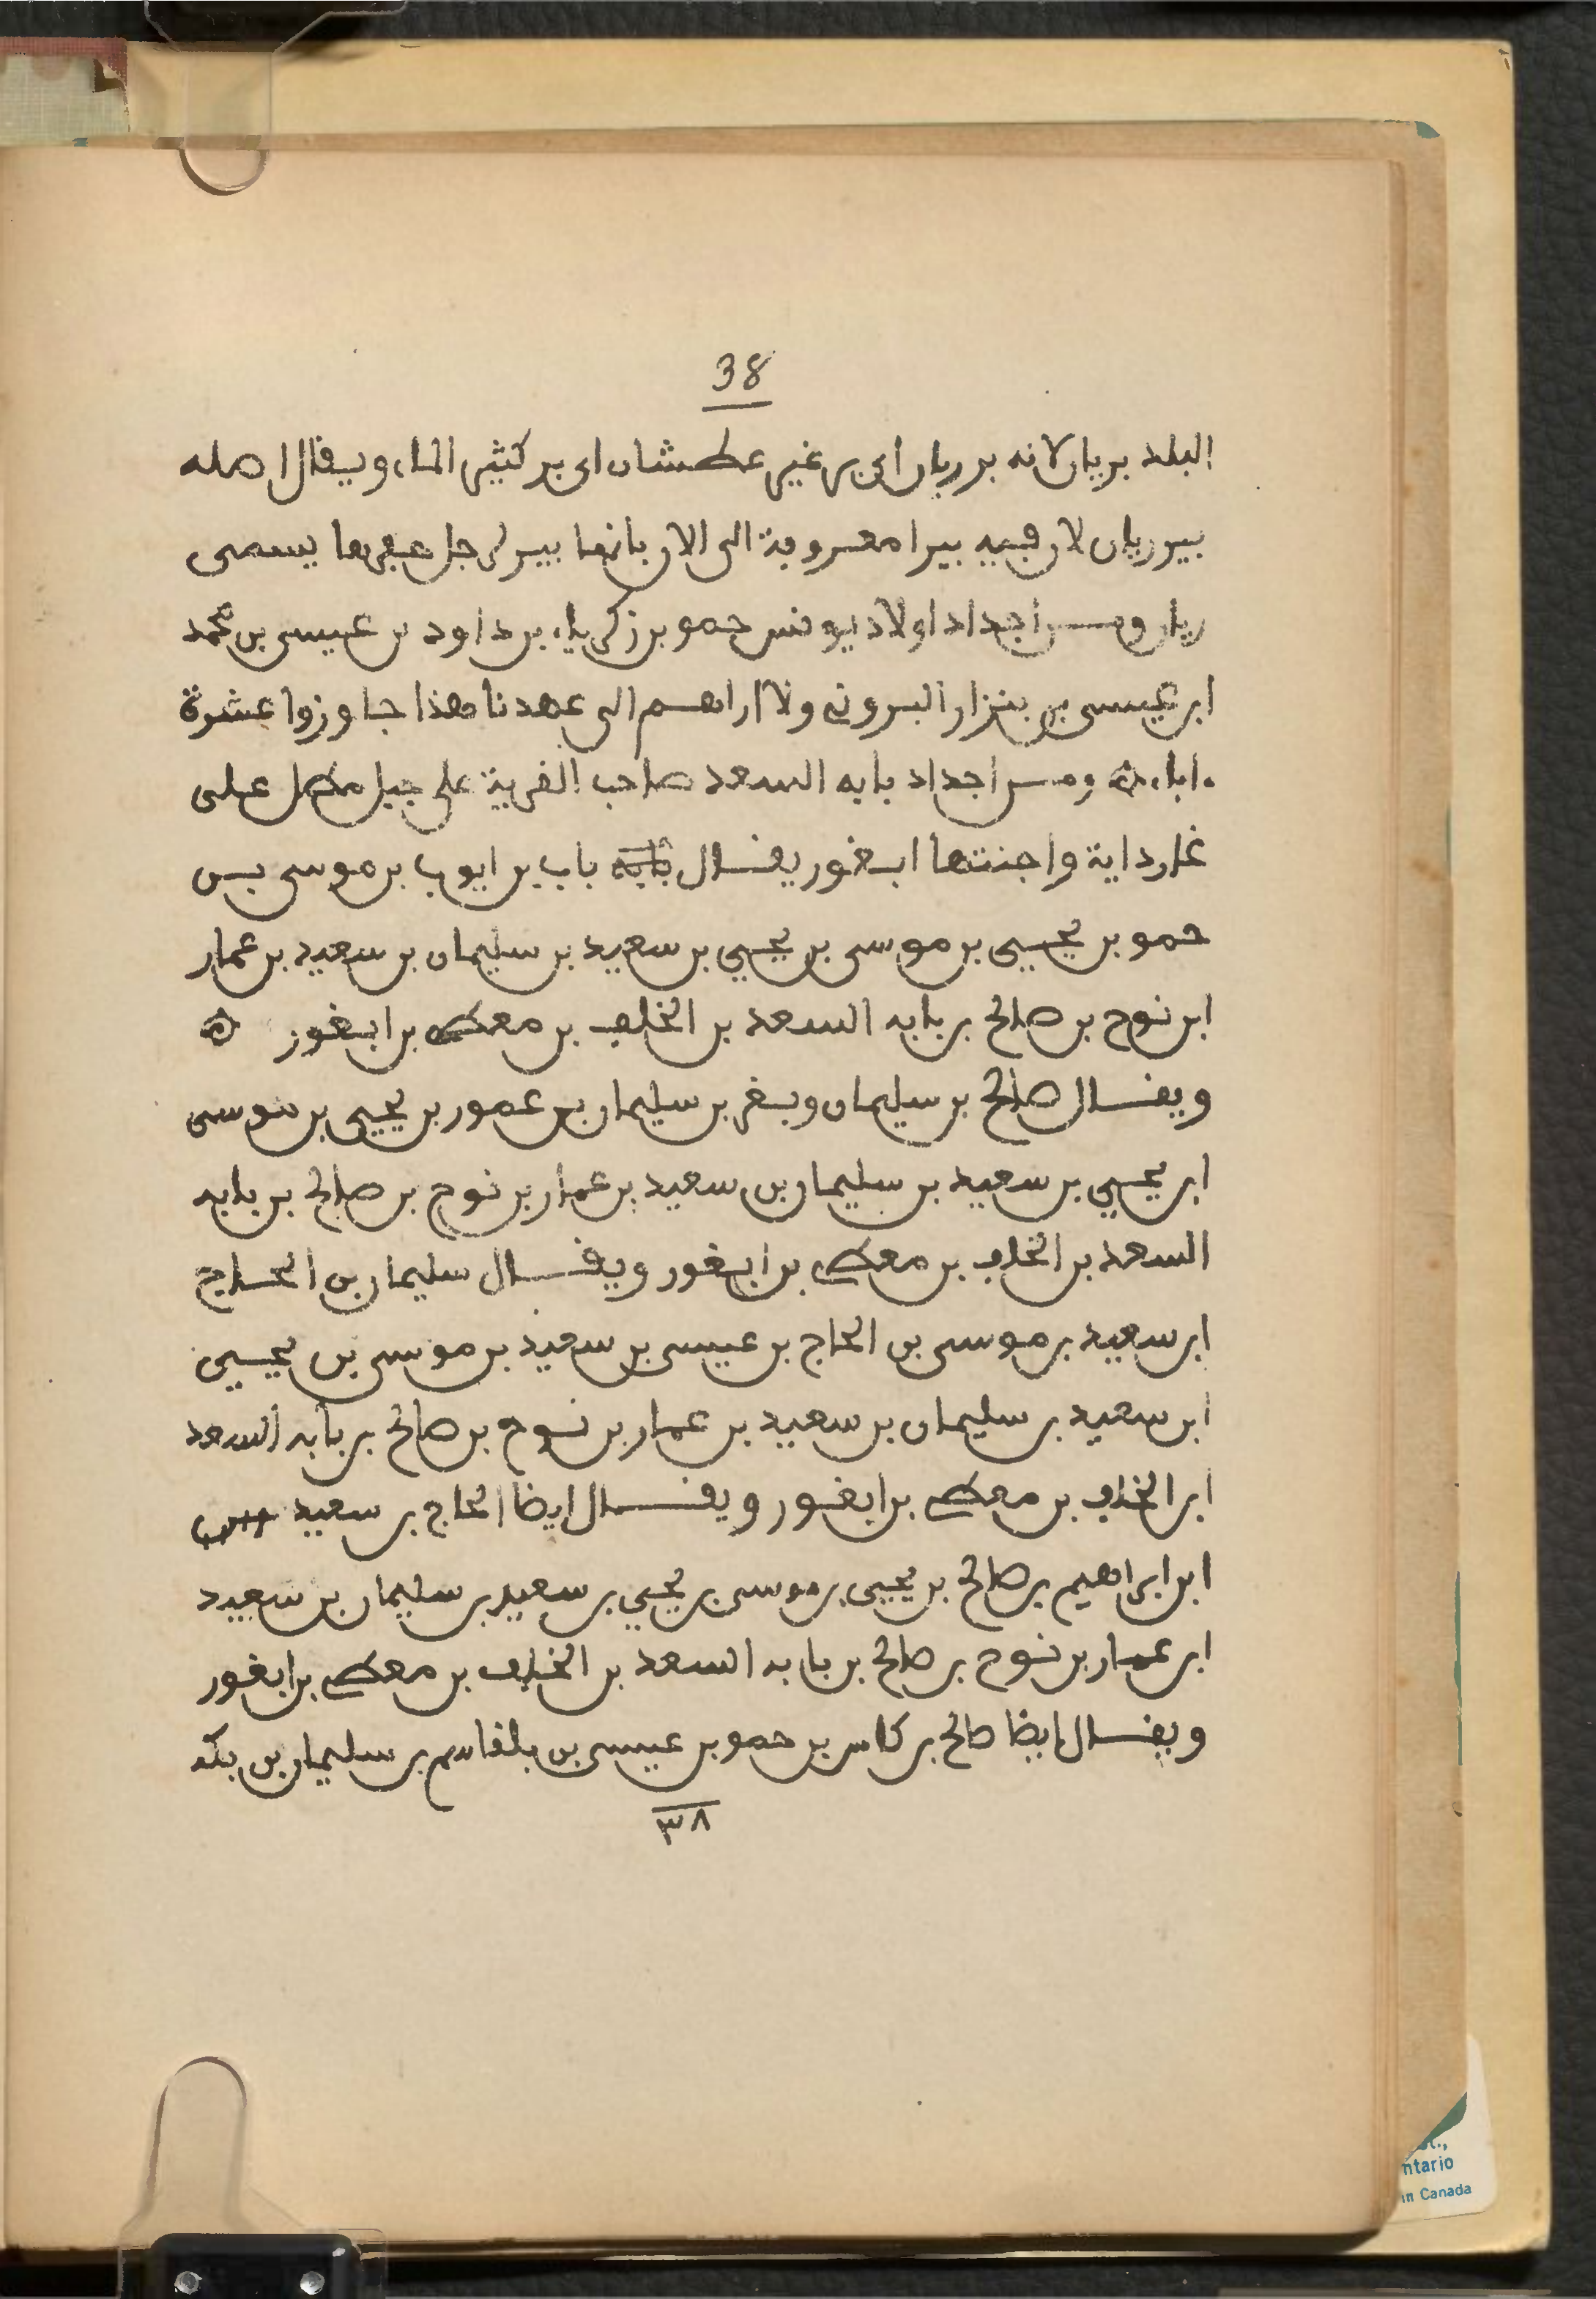 38
البلد بريان لانه بر ريان اي بر غير عطشان اي بر كثير الماء ويقال اصله
بير ريان لان فيه بيرا معروفة الى الان بانها بير لرجل حفرها يسمى
ريان ومن اجداد اولاد يونس حمو بن زكرياء بن داود بن عيسى بن محمد
ابن عيسى بن بنزار البروني ونا اراهم الى عهدنا هذا جاوزوا عشرة
ءاباء ومن اجداد بابه السعد صاحب القرية على جبل مطل على
غارداية واجنتها ابغور يقال باب بن ايوب بن موسى بن
حمو بن يحيى بن موسى بن يحيي بن سعيد بن سليمان بن سعيد بن عمار
ابن نوح بن صالح بن بابه السعد بن الخلف بن معطى بن ابغور
ويقال صالح بن سليمان وبغر بن سليمان بن عمور بن يحيى بن موسى
ابن يحيي بن سعيد بن سليمان بن سعيد بن عمار بن نوح بن صالح بن بابه
السعد بن الخلف بن معطى بن ابغور ويقال سليمان بن الحاج
ابن سعيد بن موسى بن الحاج بن عيسى بن سعيد بن موسى بن يحيى
ابن سعيد بن سليمان بن سعيد بن عمار بن نوح بن صالح بن بابه السعد
ابن الخلف بن معطى بن ابغور ويقال ايضا الحاج بن سعيد
ابن ابراهيم بن صالح بن يحيى بن موسى بن يحيي بن سعيد بن سليمان بن سعيد
ابن عمار بن نوح بن صالح بن بابه السعد بن الخلف بن معطى بن ابغور
ويقال ايضا صالح بن كاس بن حمو بن عيسى بن بلقاسم بن سليمان بن بكه
٣٨
ntario
in Canada